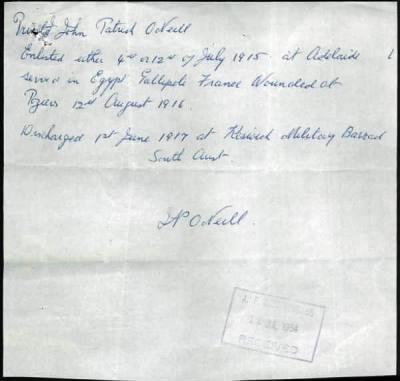 Private John Patrick O'Neill
Enlisted either 4th or 12th of July 1915 at Adelaide
served in Egypt Gallipoli France Wounded at
12th August 1916
Discharged 1st June 1917 at Keswick Military Barrack
South Aust.
JP O'Neill.
1954
RECEIVED